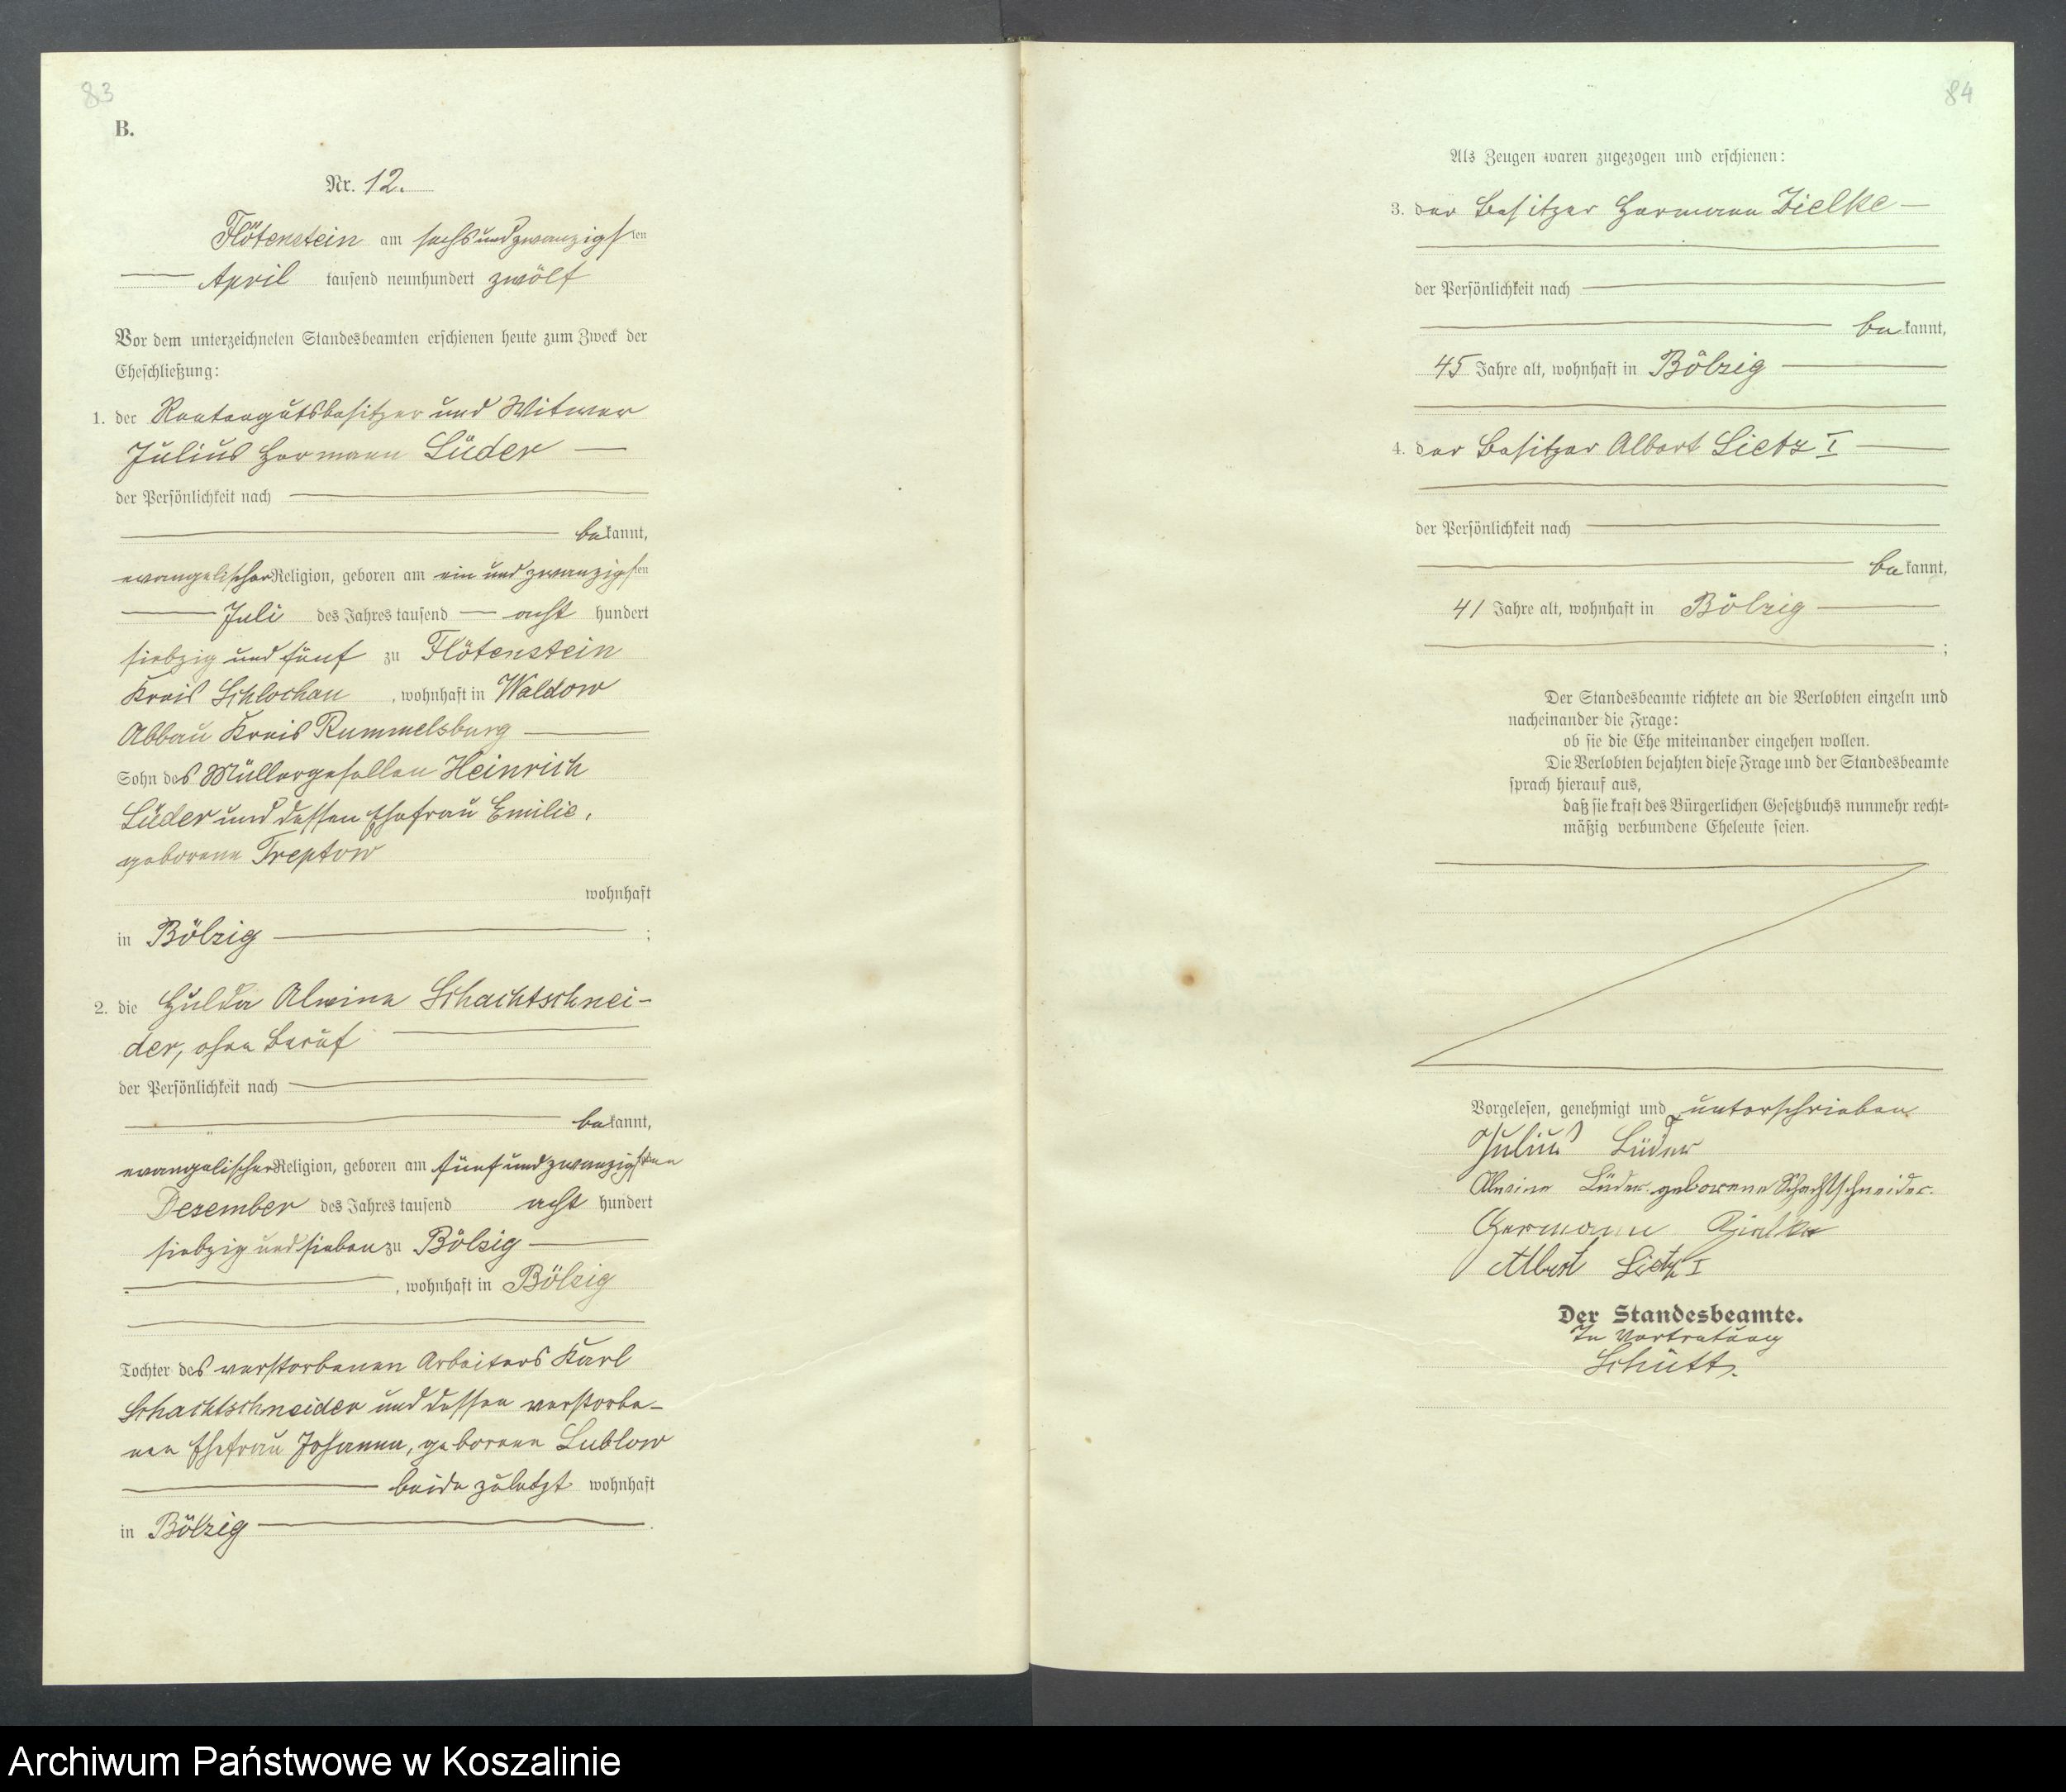 83
B.
Nr. 12.
Flötenstein am sechsundzwanzigsten
April tausend neunhundert zwölf
Vor dem unterzeichneten Standesbeamten erschienen heute zum Zweck der
Eheschließung:
1. der Rentengutsbesitzer und Witwer
Julius Hermann Lüder
der Persönlichkeit nach
bekannt,
evangelischer Religion, geboren am ein und zwanzigsten
Juli des Jahres tausend acht hundert
siebzig und fünf zu Flötenstein
Kreis Schlochau, wohnhaft in Waldow
Abbau Kreis Rummelsburg
Sohn des Müllergesellen Heinrich
Lüder und dessen Ehefrau Emilie,
geborene Treptow
wohnhaft
in Bölzig ;
2. die Hulda Alwine Schachtschnei-
der, ohne Beruf
der Persönlichkeit nach
bekannt,
evangelischer Religion, geboren am fünfundzwanzigsten
Dezember des Jahres tausend acht hundert
siebzig und sieben zu Bölzig
, wohnhaft in Bölzig
Tochter des verstorbenen Arbeiters Karl
Schachtschneider und dessen verstorbe-
nen Ehefrau Johanna, geborene Lublow
beide zuletzt wohnhaft
in Bölzig .
84
Als Zeugen waren zugezogen und erschienen:
3. der Besitzer Hermann Zielke
der Persönlichkeit nach
bekannt,
45 Jahre alt, wohnhaft in Bölzig
4. der Besitzer Albert Lietz I
der Persönlichkeit nach
bekannt,
41 Jahre alt, wohnhaft in Bölzig
;
Der Standesbeamte richtete an die Verlobten einzeln und
nacheinander die Frage:
ob sie die Ehe miteinander eingehen wollen.
Die Verlobten bejahten diese Frage und der Standesbeamte
sprach hierauf aus,
daß sie kraft des Bürgerlichen Gesetzbuchs nunmehr recht=
mäßig verbundene Eheleute seien.
Vorgelesen, genehmigt und unterschrieben
Julius Lüder
Alwine Lüder geborene Schachtschneider.
Hermann Zielke
Albert Lietz I
Der Standesbeamte.
In Vertretung
Schütt.
Archiwum Państwowe w Koszalinie